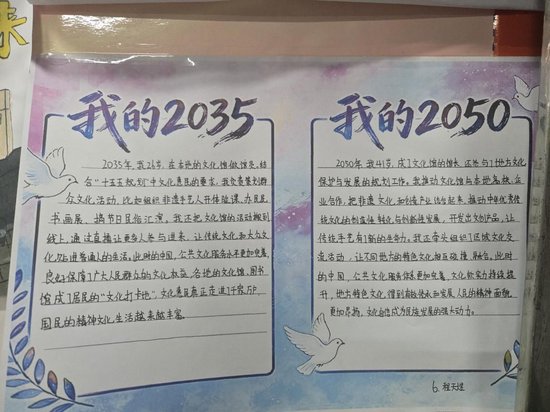 我的2035
2035年，我26岁，在本地的文化馆做馆员，结
合"十五五规划"中文化惠民的要求，我负责策划群
众文化活动，比如组织非遗手艺人开体验课、办民乐
书画展、搞节日民俗汇演，我还把文化馆的活动搬到
线上，通过直播让更多人参与进来，让传统文化和大众文
化致进普通人的生活。此时的中国，公共文化服务水平更加完善，
良好保障了广大人民群众的文化权益，各地的文化馆、图书
馆成了居民的"文化打卡地"，文化惠民真正走进了千家万户
国民的精神文化生活越来越丰富。
我的2050
2050年我41岁，成了文化馆的馆长，还参与了地方文化
保护与发展的规划工作。我推动文化馆与本地高校、企
业合作，把非遗文化和创造产业结合起来，推动中华优秀传
统文化的创造性转化与创新性发展，开发出文创产品，让
传统手艺有了新的生命力。我还牵头组织了区域文化交
流活动，让不同地方传统文化相互碰撞、融合。此时
的中国，公共文化服务体系更加完善，文化软实力持续提
升，地方特色文化得到有效传承和发展，人民的精神面貌
更加昂扬，文化自信成为民族发展的强大动力。
6. 程天